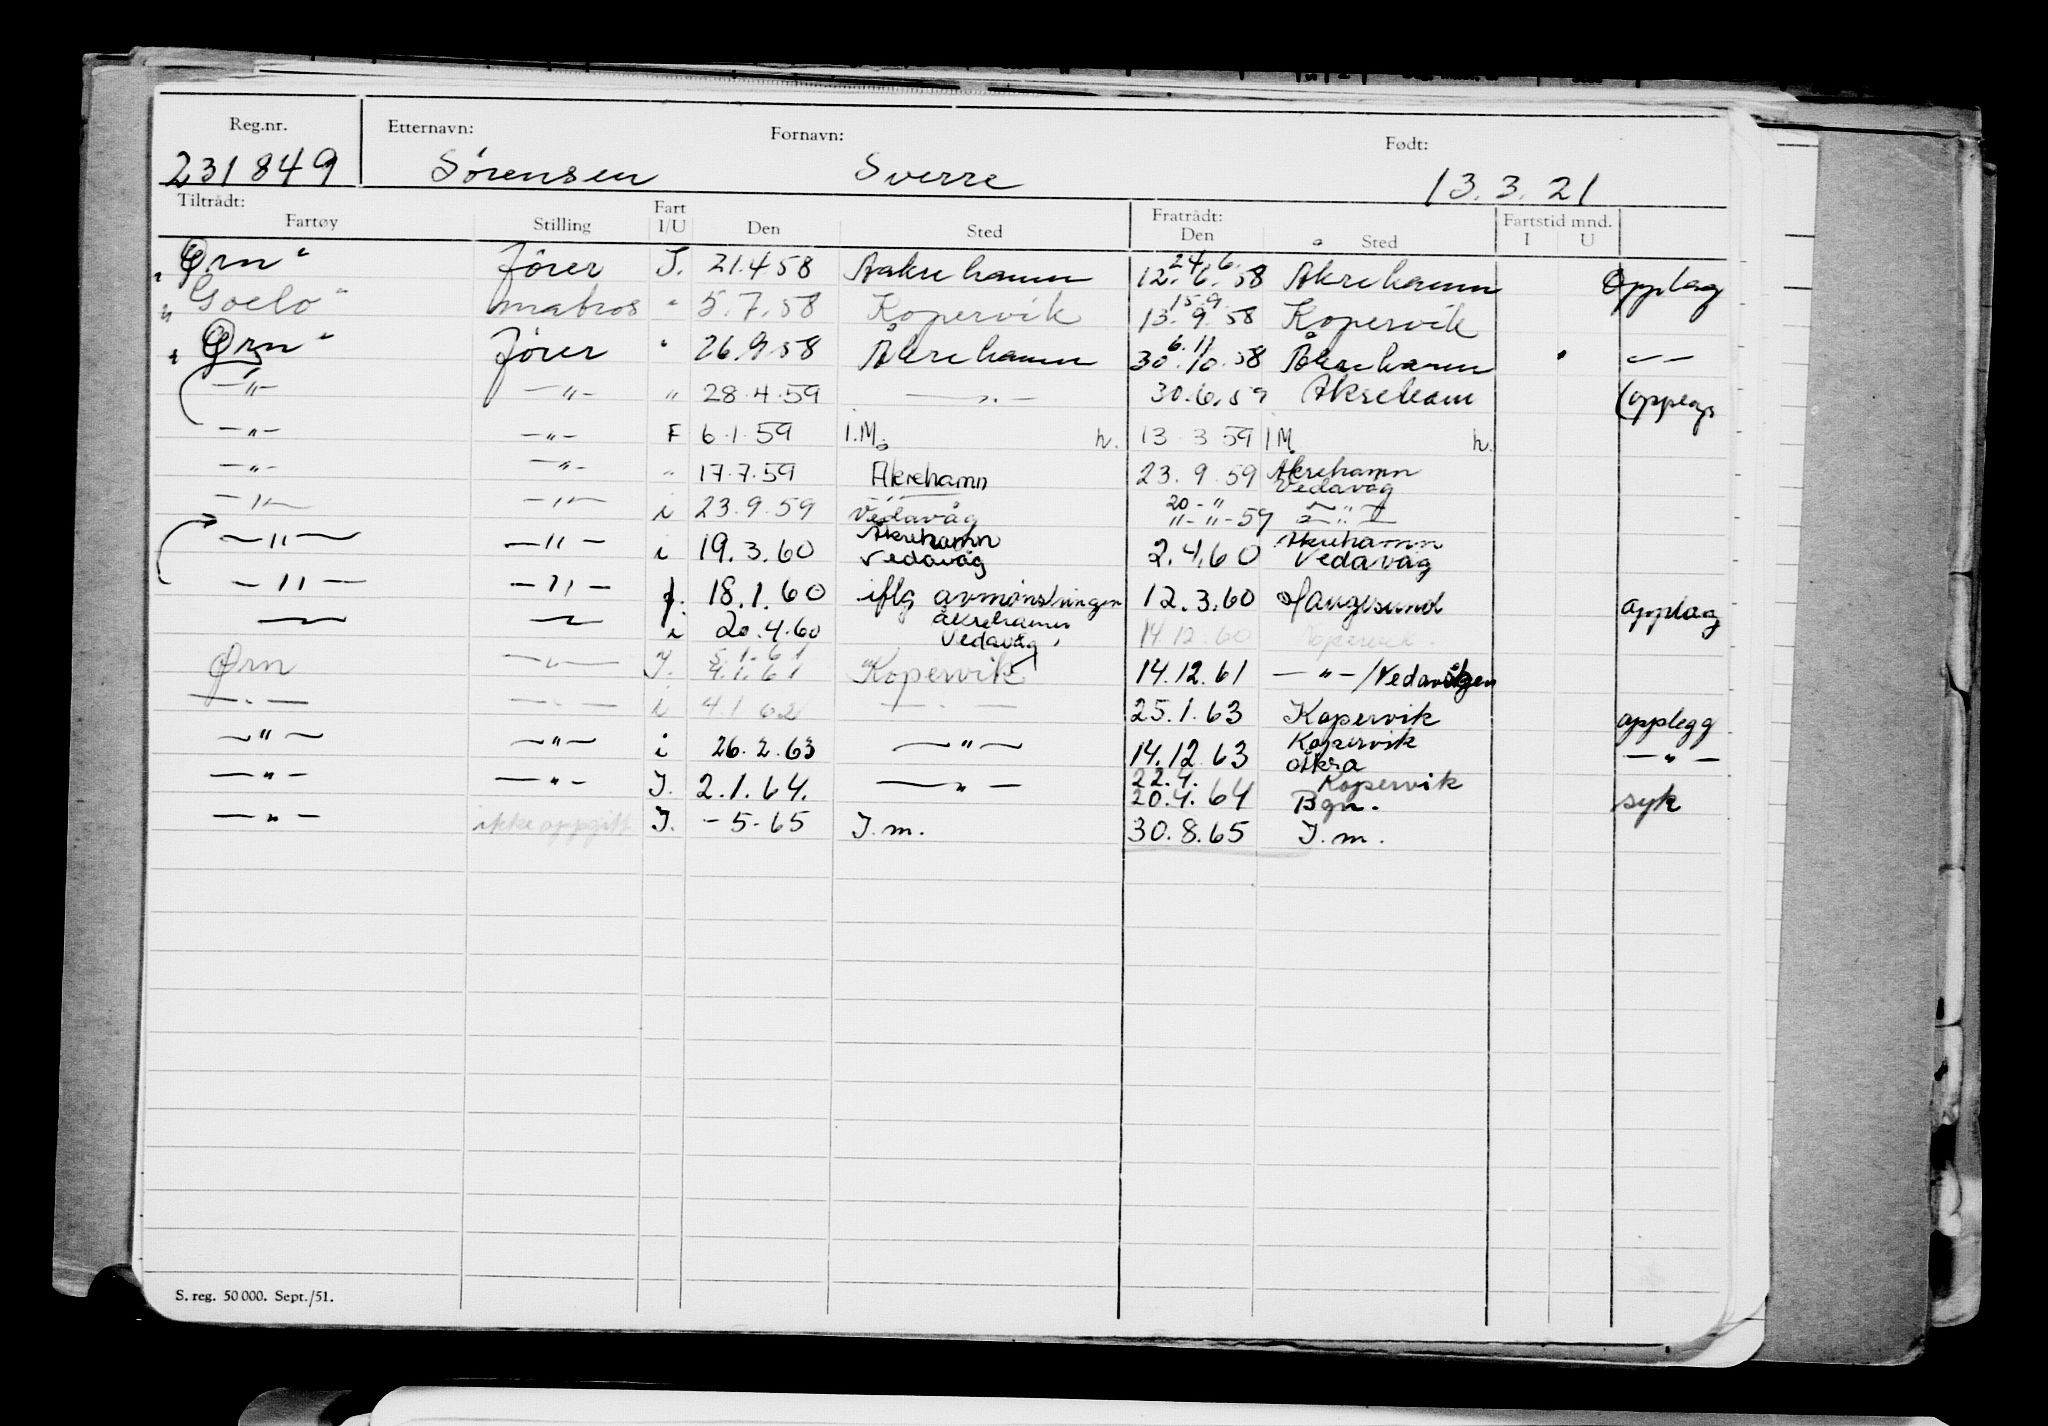 Reg.nr. Etternavn: Fornavn: Født:
231849 Sørensen Sverre 13.3.21
Tiltrådt: Fratrådt: Fartstid mnd.
Fartøy Stilling Fart I/U Den Sted Den Sted I U
"Ørn" fører I. 21.4 58 Aakrehamn 24.6. 12.6.58 Åkrehamn Opplag
"Goelo" matros " 5.7.58 Kopervik 15.9. 13.9.58 Kopervik
"Ørn" fører " 26.9 58 Åkrehamn 6.11 30.10.58 Åkrehamn — —
—"— —"— " 28.4.59 —"— 30.6.59 Åkrehamn (opplag
—"— —"— F 6.1.59 I.M. h. 13.3.59 I M h.
—"— —"— " 17.7.59 Åkrehamn 23.9.59 Åkrehamn Vedavåg
—"— —"— i 23.9.59 Vedavåg 20-" "-"-59 —"—
—"— —"— i 19.3.60 Åkrehamn Vedavåg 2.4.60 Åkrehamn Vedavåg
—"— —"— f. 18.1.60 iflg avmønstringen 12.3.60 Haugesund opplag
— — i 20.4.60 Åkrehamn Vedavåg 14.12.60 Kopervik
Ørn —"— I. 5.1.61 4.1.61 Kopervik 14.12.61 —"—/Vedavågen
—"— —"— i 4.1.62 —"— 25.1.63 Kopervik opplegg
—"— —"— i 26.2.63 —"— 14.12.63 Kopervik Åkra —"—
—"— —"— I. 2.1.64. —"— 22.4. 20.4.64 Kopervik Bgn. syk
—"— ikke oppgitt I. -5-65 I.m. 30.8.65 I.m.
S. reg. 50 000. Sept./51.